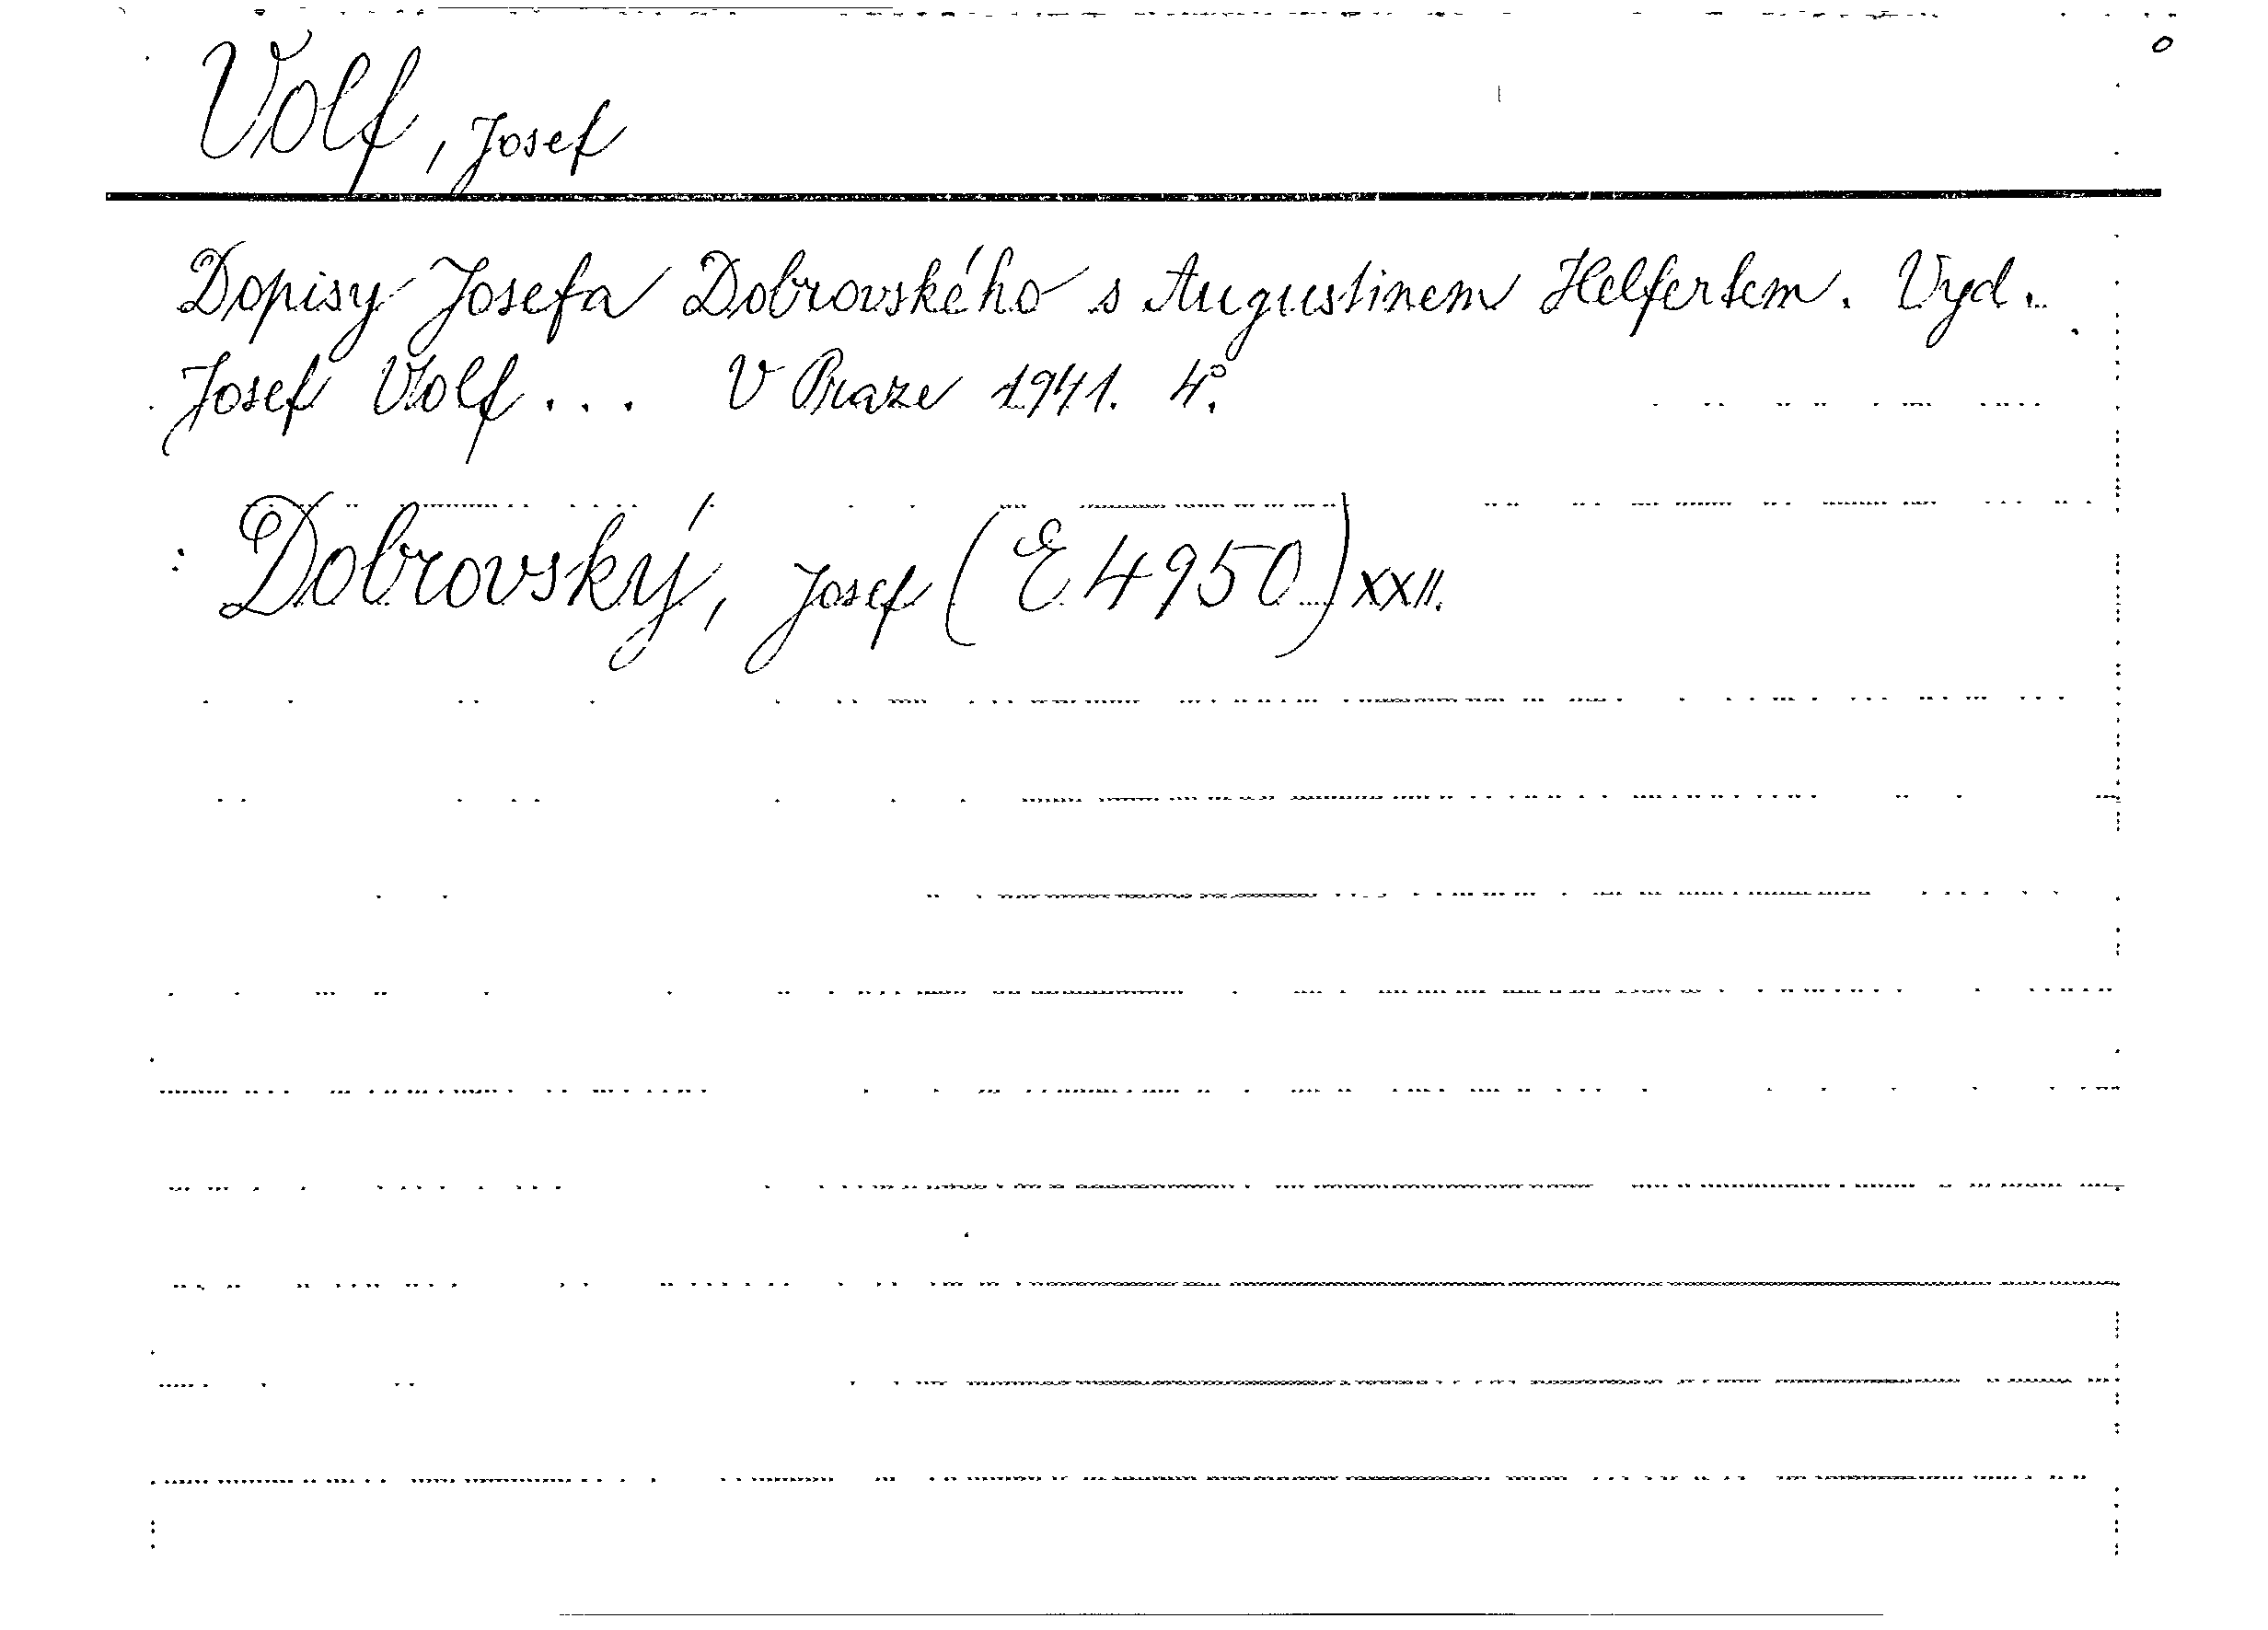 Volf, Josef
Dopisy Josefa Dobrovského s Augustinem Helfertem. Vyd.
Josef Volf... V Praze 1941. 4°.
Dobrovský, Josef (E 4950) XXII.